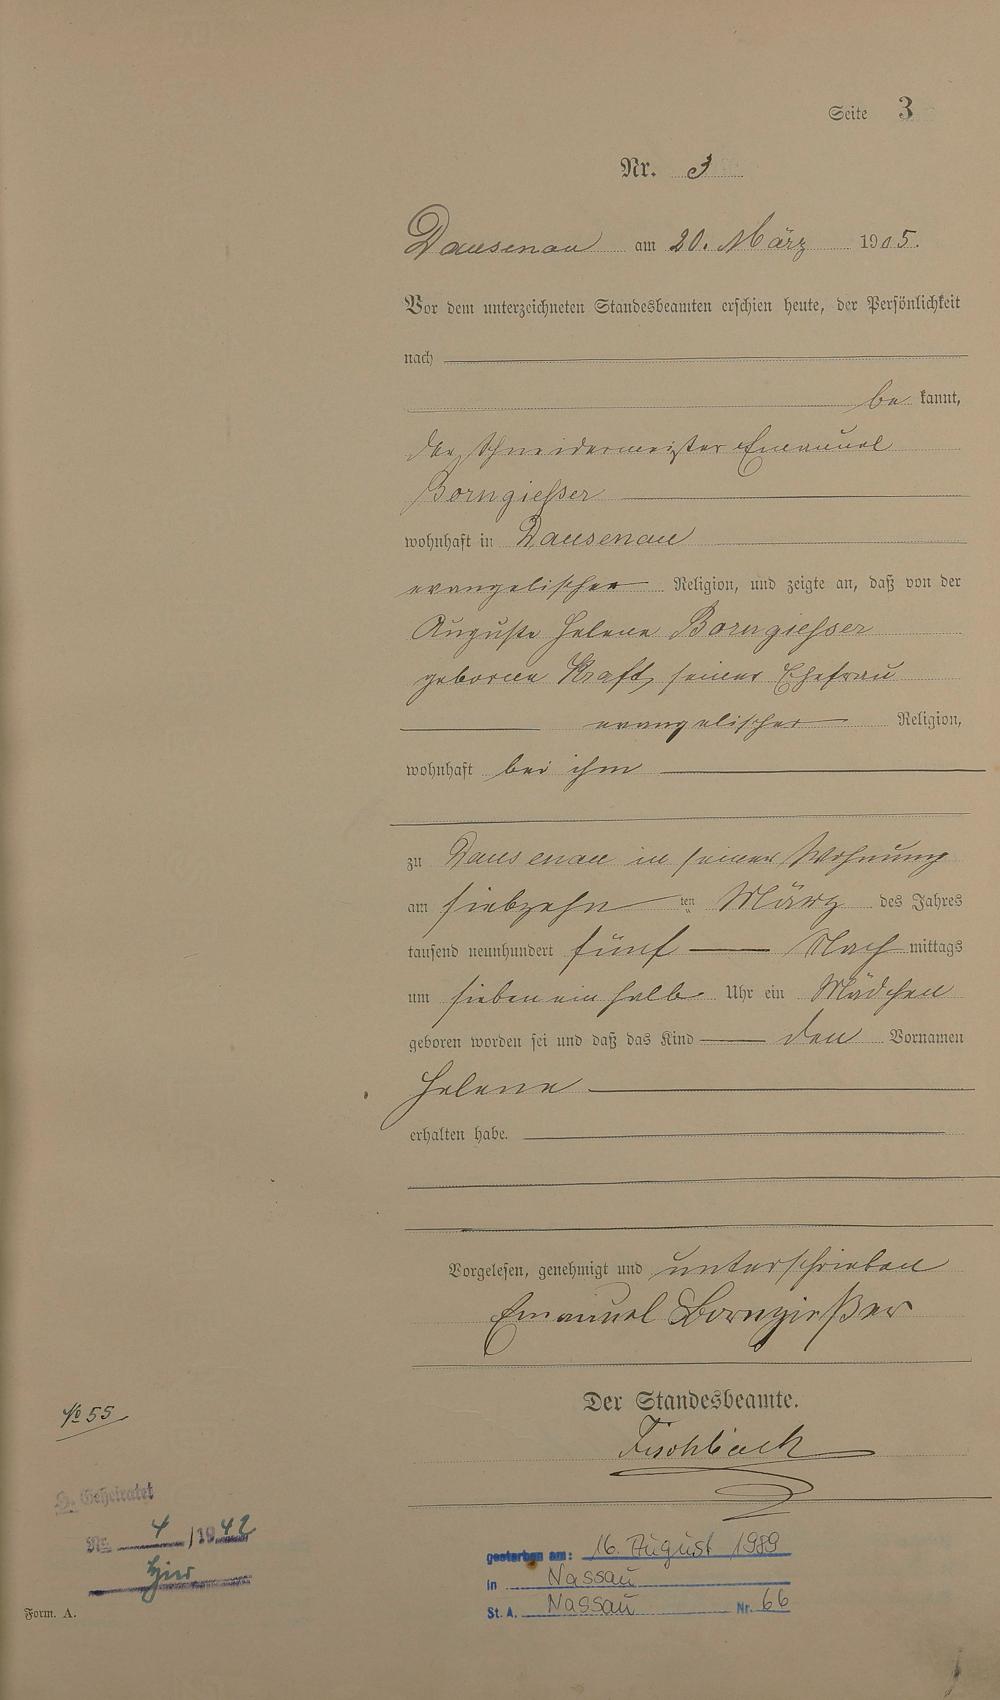 Seite 3
Nr. 3
Dausenau am 20. März 1905.
Vor dem unterzeichneten Standesbeamten erschien heute, der Persönlichkeit
nach
be kannt,
der Schneidermeister Emanuel
Borngiesser
wohnhaft in Dausenau
evangelischer Religion, und zeigte an, daß von der
Auguste Helene Borngiesser
geborne Kraft, seiner Ehefrau
evangelischer Religion,
wohnhaft bei ihm
zu Dausenau in seiner Wohnung
am siebzehn ten März des Jahres
tausend neunhundert fünf Nach mittags
um sieben ein halb Uhr ein Mädchen
geboren worden sei und daß das Kind den Vornamen
Helene
erhalten habe.
Vorgelesen, genehmigt und unterschrieben
Emanuel Borngießer
Der Standesbeamte.
Fischbach
№ 55
Geheiratet
Nr. 4 /1942
hier
gestorben am: 16. August 1989
in Nassau
St. A. Nassau Nr. 66
Form. A.